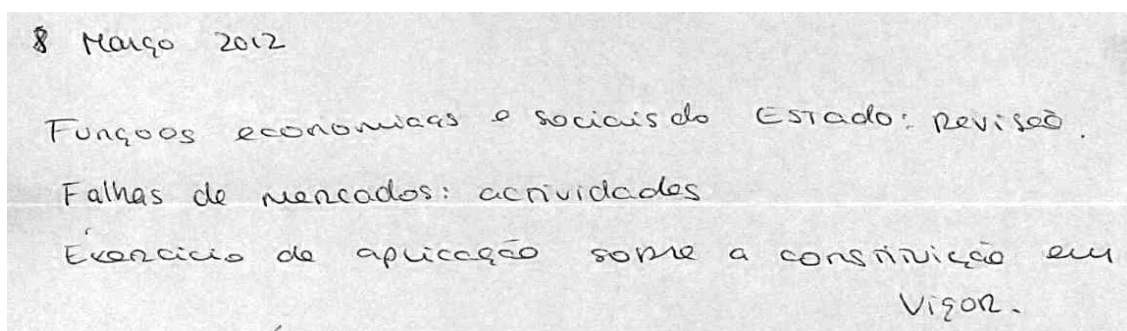 8 Março 2012
Funções economicas e sociais do Estado: Revisão.
Falhas de mercados: actividades
Exercicio de aplicação sobre a constituição em
vigor.